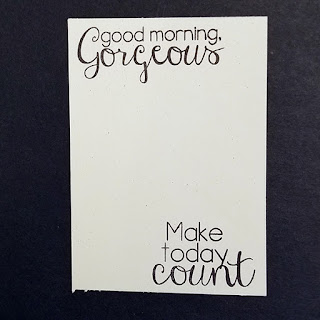 good morning,
Gorgeous
Make
today
count